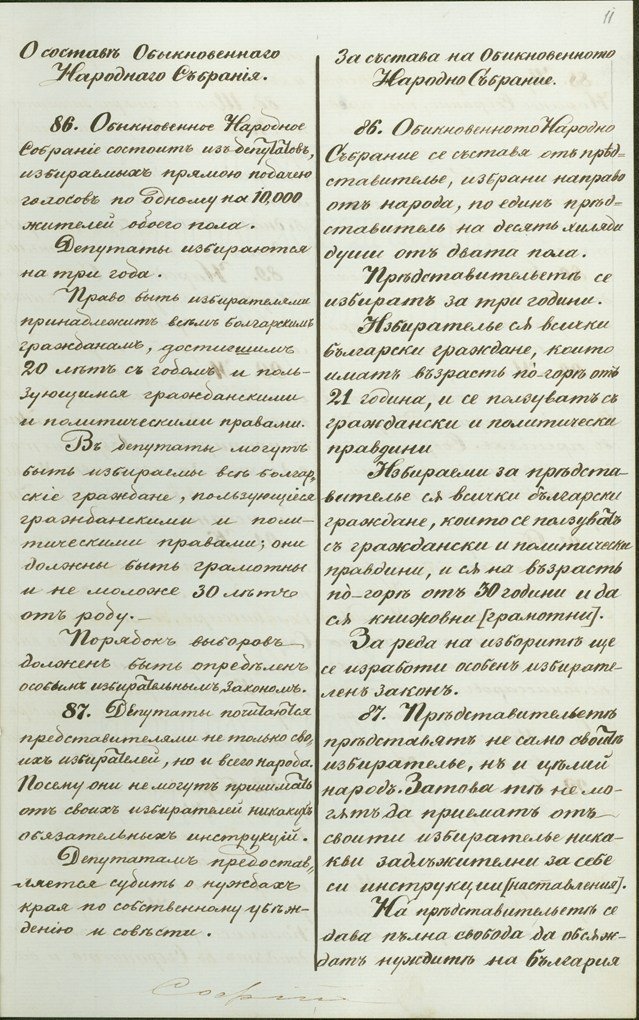 11
О составѣ Обыкновеннаго
Народнаго Събранія.
86. Обыкновенное Народное
Собраніе состоитъ изъ депутатовъ,
избираемыхъ прямою подачею
голосовъ по одному на 10,000
жителей обоего пола.
Депутаты избираются
на три года.
Право быть избирателями
принадлежитъ всѣмъ болгарскимъ
гражданамъ, достигшимъ
20 лѣтъ съ годомъ и поль-
зующимся гражданскими
и политическими правами.
Въ депутаты могутъ
быть избираемы всѣ болгар-
скіе граждане, пользующіеся
гражданскими и поли-
тическими правами; они
должны быть грамотны
и не моложе 30 лѣтъ
отъ роду.
Порядокъ выборовъ
долженъ быть опредѣленъ
особымъ избирательнымъ Закономъ.
87. Депутаты почитаются
представителями не только сво-
ихъ избирателей, но и всего народа.
Посему они не могутъ принимать
отъ своихъ избирателей никакихъ
обязательныхъ инструкцій.
Депутатамъ предостав-
ляется судить о нуждахъ
края по собственному убѣж-
денію и совѣсти.
За състава на Обикновенното
Народно Събрание.
86. Обикновенното Народно
Събрание се съставя отъ прѣд-
ставителье, избрани направо
отъ народа, по единъ прѣд-
ставитель на десять хиляди
души отъ двата пола.
Прѣдставительетѣ се
избиратъ за три години.
Избирателье сѫ всички
български граждане, които
иматъ възрасть по-горѣ отъ
21 година, и се ползуватъ съ
граждански и политически
правдини
Избираеми за прѣдста-
вителье сѫ всички български
граждане, които се ползуватъ
съ граждански и политически
правдини, и сѫ на възрасть
по-горѣ отъ 30 години и да
сѫ книжовни [грамотни].
За реда на изборитѣ ще
се изработи особенъ избирате-
ленъ законъ.
87. Прѣдставительетѣ
прѣдставятъ не само своитѣ
избирателье, нъ и цѣлий
народъ. Затова тѣ не мо-
гѫтъ да приематъ отъ
своити избирателье ника-
кви задлъжителни за себе
си инструкции [наставления].
На прѣдставительетѣ се
дава пълна свобода да обсѫж-
датъ нуждитѣ на България